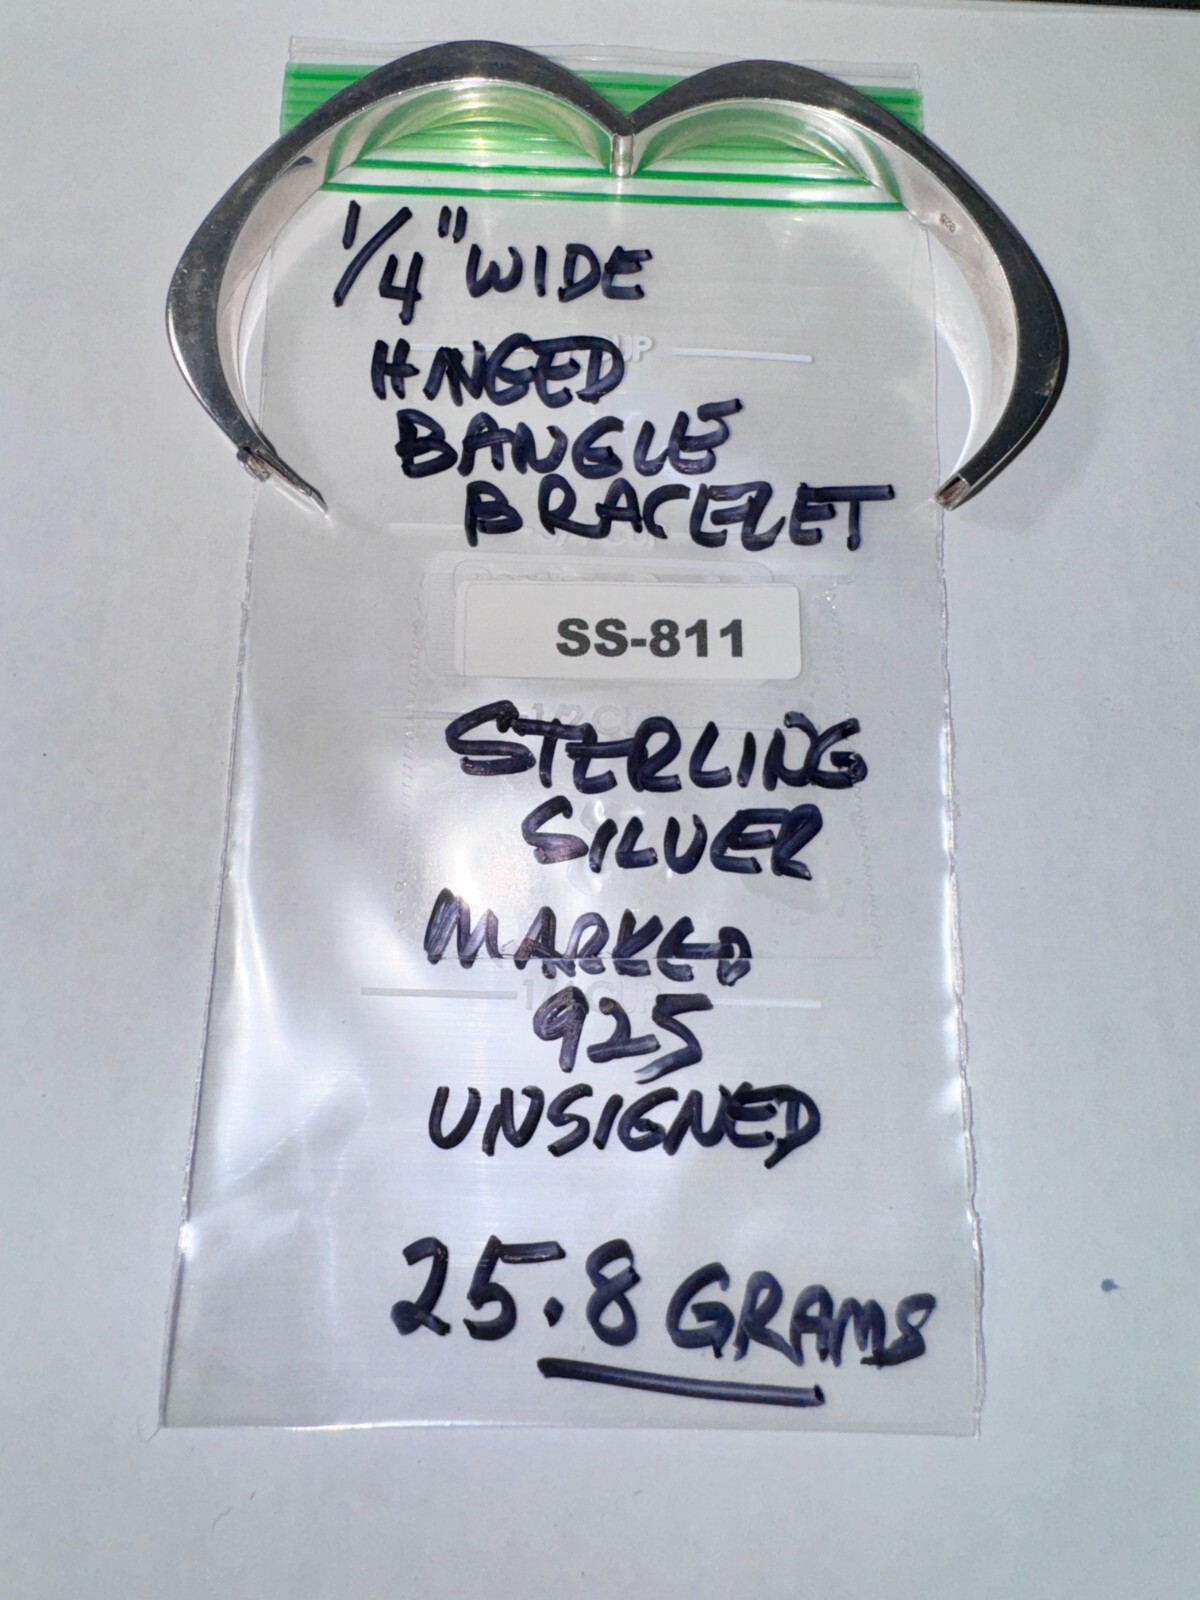 925
1/4" WIDE
CUP
HINGED
BANGLE
BRACELET
SS-811
1/2 CUP
STERLING
SILVER
MARKED
1/4 CUP
925
UNSIGNED
25.8 GRAMS